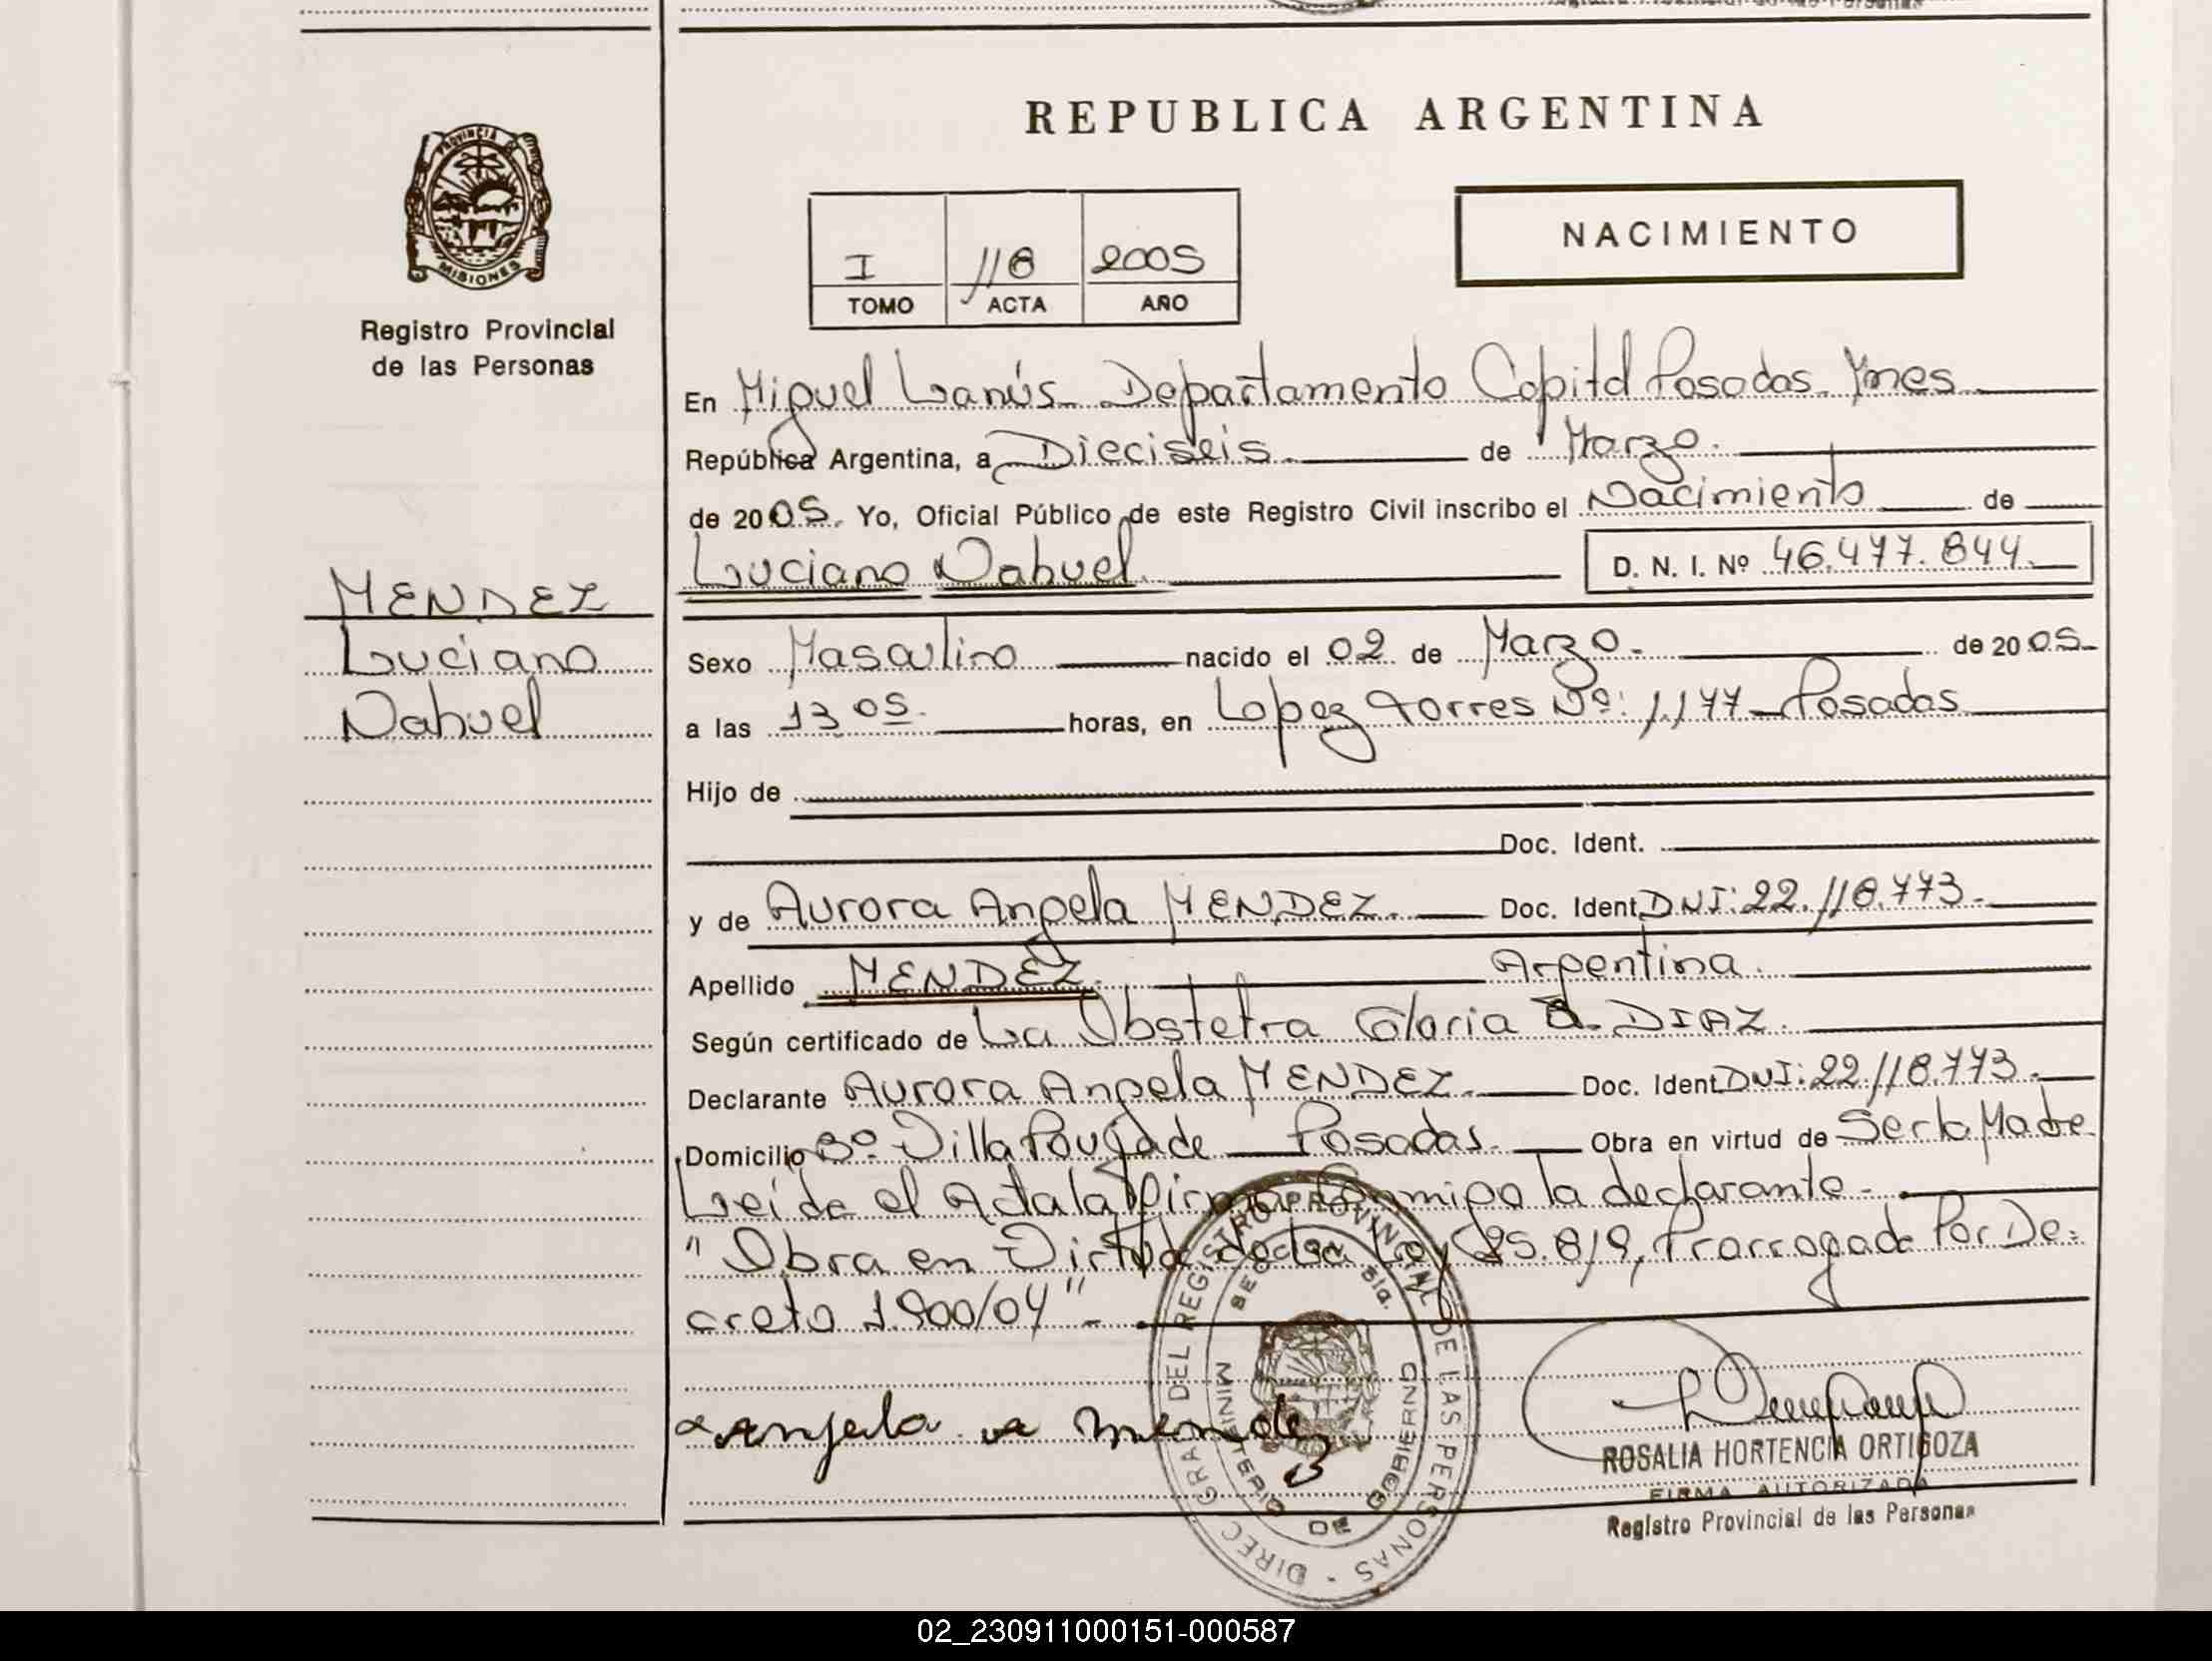 REPUBLICA ARGENTINA
PROVINCIA DE
MISIONES
Registro Provincial
de las Personas
NACIMIENTO
I 118 2005
TOMO ACTA AÑO
En Miguel Lanús - Departamento Capital Posadas - Mnes
República Argentina, a Dieciseis de Marzo.
de 2005. Yo, Oficial Público de este Registro Civil inscribo el Nacimiento de
Luciano Nahuel D. N. I. Nº 46.477.844.
MENDEZ
Luciano
Nahuel
Sexo Masculino nacido el 02 de Marzo. de 2005.
a las 13 05. horas, en Lopez Torres Nº: 1.177 - Posadas
Hijo de
Doc. Ident.
y de Aurora Angela MENDEZ. Doc. Ident. DNI: 22.118.773.
Apellido MENDEZ. Argentina.
Según certificado de La Obstetra Gloria DIAZ.
Declarante Aurora Angela MENDEZ. Doc. Ident. DNI: 22.118.773.
Domicilio Bº Villa Poujade - Posadas. Obra en virtud de Ser la Madre
Leída el Acta la firma conmigo la declarante.
"Obra en Virtud de la Ley 25.819, Prorrogada Por De=
creto 1.900/04" -
Angela Mendez
DIREC. GRAL. DEL REGISTRO PROVINCIAL DE LAS PERSONAS
MINISTERIO DE GOBIERNO
SECCION
ROSALIA HORTENCIA ORTIGOZA
FIRMA AUTORIZADA
Registro Provincial de las Personas
02_230911000151-000587